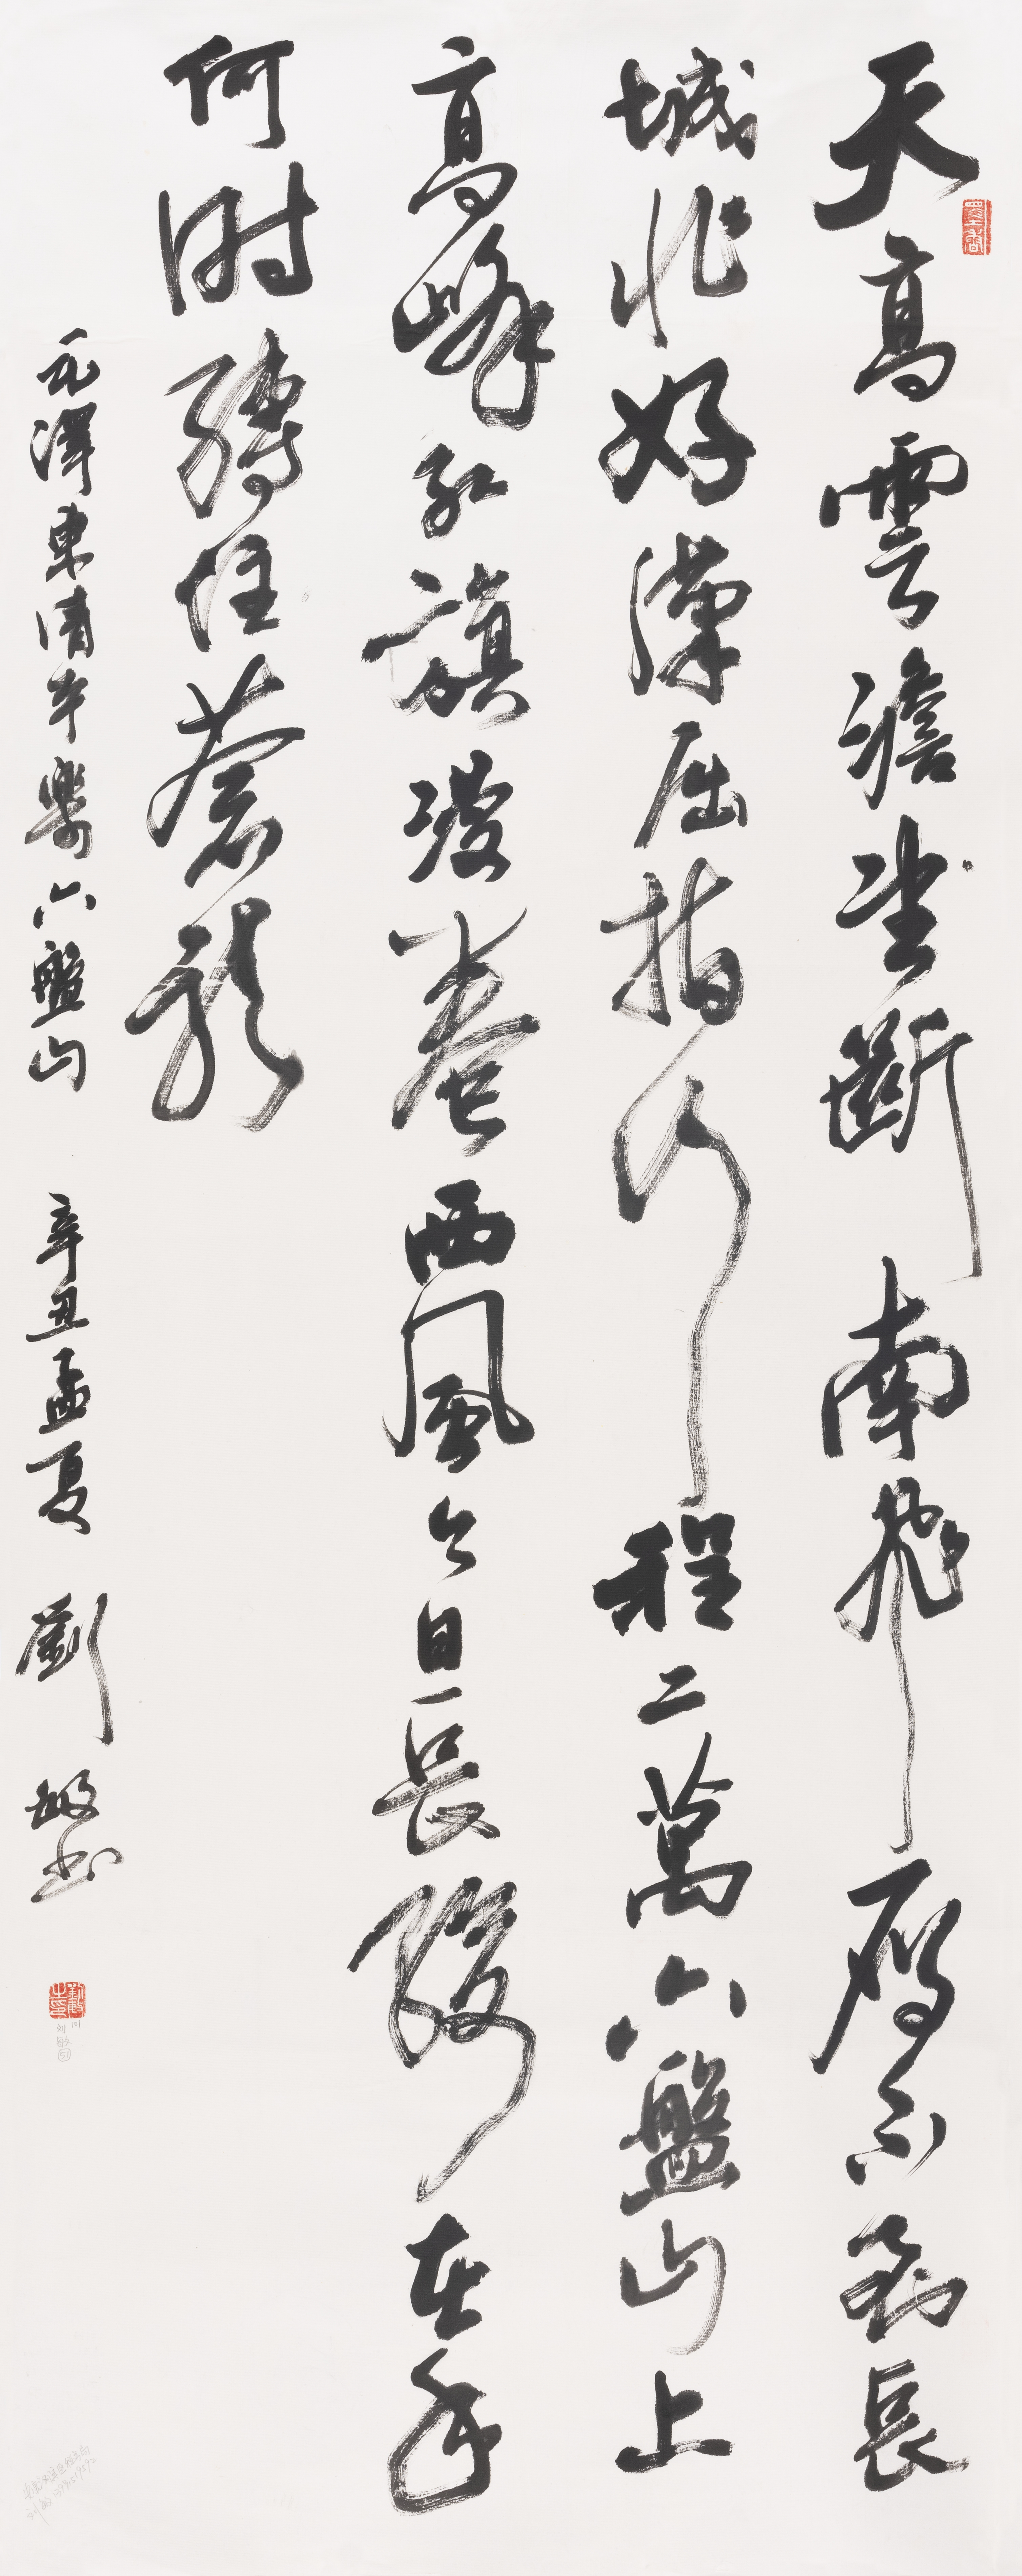 天高雲澹望斷南飛雁不到長
城非好漢屈指行程二萬六盤山上
高峰紅旗漫卷西風今日長纓在手
何時縛住蒼龍
毛澤東清平樂六盤山 辛丑孟夏 劉敏書
墨香